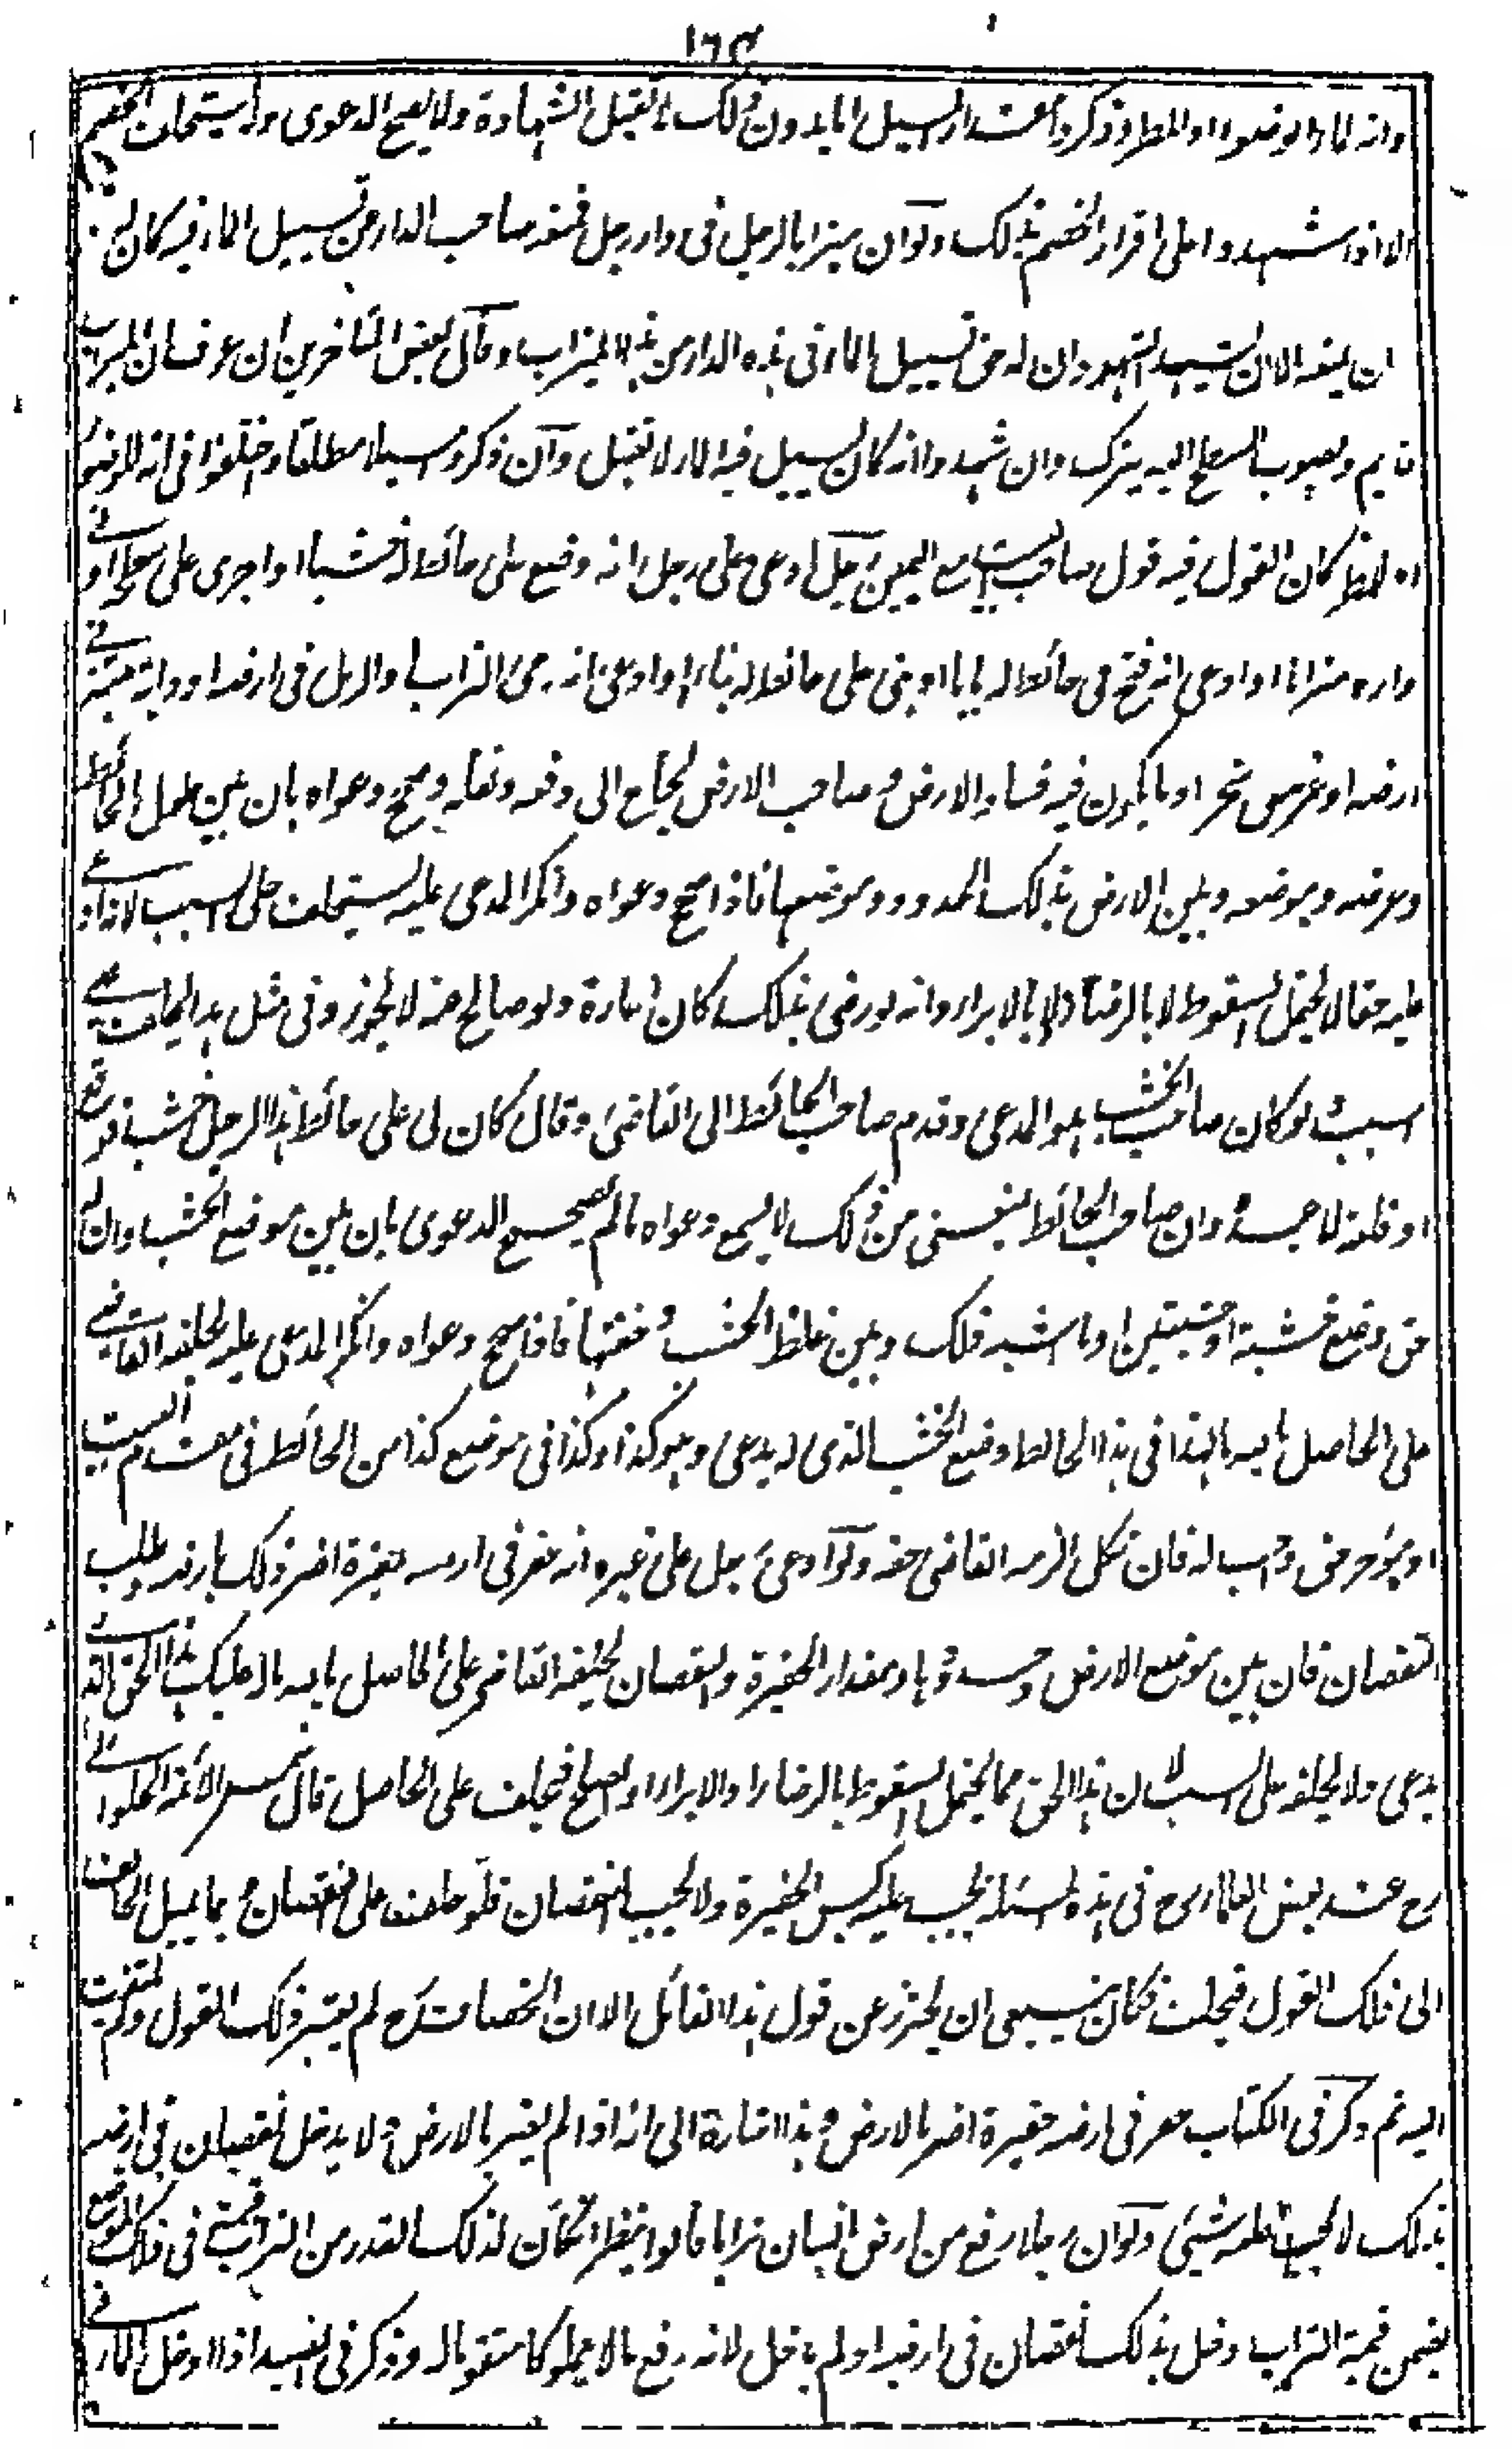 ١٦٤
وانه لماء الوضوء او المطر وذكروا مقدار السيل اما بدون ذلك لا تقبل الشهادة ولا يصح الدعوى ولا يستحلف الخصم
الا اذا شهدوا على اقرار الخصم بذلك ولو ان ميزابا لرجل فى دار رجل فمنعه صاحب الدار عن تسييل الماء فيه كان له
ان يمنعه الا ان يشهد الشهود ان له حق تسييل الماء فى هذه الدار من هذا الميزاب وقال بعض المتأخرين ان عرف ان الميزاب
قديم وتصويب السطح اليه يترك وان شهدوا انه كان يسيل فيه الماء لا تقبل وان ذكروا مسيلا مطلقا واختلفوا فى انه للوضوء
او للمطر كان القول فيه قول صاحب البيت مع اليمين رجل ادعى على رجل انه وضع على حائط له خشبا او اجرى على سطحه او فى
داره ميزابا او ادعى انه فتح فى حائط له بابا او بنى على حائط له بناء او ادعى انه رمى التراب او الزبل فى ارضه او دابة ميتة فى
ارضه او غرس شجرا او ما يكون فيه فساد الارض وصاحب الارض يحتاج الى رفعه ونقله وصحح دعواه بان بين طول الحائط
وعرضه وموضعه وبين الارض بذكر الحدود وموضعها فاذا صح دعواه وانكر المدعى عليه يستحلف على السبب لانه ادعى
عليه حقا لا يحتمل السقوط لا بالرضا ولا بالابراء وانه لو رضى بذلك كان اعارة ولو صالح عنه لا يجوز وفى مثل هذا يحلف على
السبب ولو كان صاحب الخشب هو المدعى وقدم صاحب الحائط الى القاضى وقال كان لى على حائط هذا الرجل خشب فوقع
او قلعته لاعيده وان صاحب الحائط يمنعنى من ذلك لا يسمع دعواه ما لم يصحح الدعوى بان بين موضع الخشب وان له
حق وضع خشبة او خشبتين او ما اشبه ذلك وبين غلظ الخشب وخفتها فاذا صح دعواه وانكر المدعى عليه يحلفه القاضى
على الحاصل بالله ما لهذا فى هذا الحائط وضع الخشب الذى يدعى وهو كذا وكذا فى موضع كذا من الحائط فى مقدم البيت
او مؤخره حق واجب له فان نكل الزمه القاضى حقه ولو ادعى رجل على غيره انه حفر فى ارضه حفيرة اضر ذلك بارضه وطلب
النقصان فان بين موضع الارض وحدودها ومقدار الحفيرة والنقصان يحلفه القاضى على الحاصل بالله ما له عليك هذا الحق الذى
يدعى ولا يحلفه على السبب لان هذا الحق مما يحتمل السقوط بالرضا او الابراء او الصلح فيحلف على الحاصل قال شمس الائمة الحلوانى
رح عند بعض العلماء رح فى هذه المسئلة يجب عليه كبس الحفيرة ولا يجب النقصان فلو حلف على النقصان ربما يميل الحالف
الى ذلك القول فيحلف فكان ينبغى ان يحترز عن قول هذا القائل الا ان الخصاف رح لم يعتبر ذلك القول ولم يلتفت
اليه ثم ذكر فى الكتاب حفر فى ارضه حفيرة اضر بالارض وهذا اشارة الى انه اذا لم يضر بالارض ولا يدخل نقصان فى ارضه
بذلك لا يجب عليه شيئ ولو ان رجلا رفع من ارض انسان ترابا قالوا ينظر ان كان لذلك القدر من التراب قيمة فى ذلك الموضع
يضمن قيمة التراب دخل بذلك نقصان فى ارضه او لم يدخل لانه رفع مالا مملوكا متقوما له وذكر فى العبد اذا ادخل الدار فى